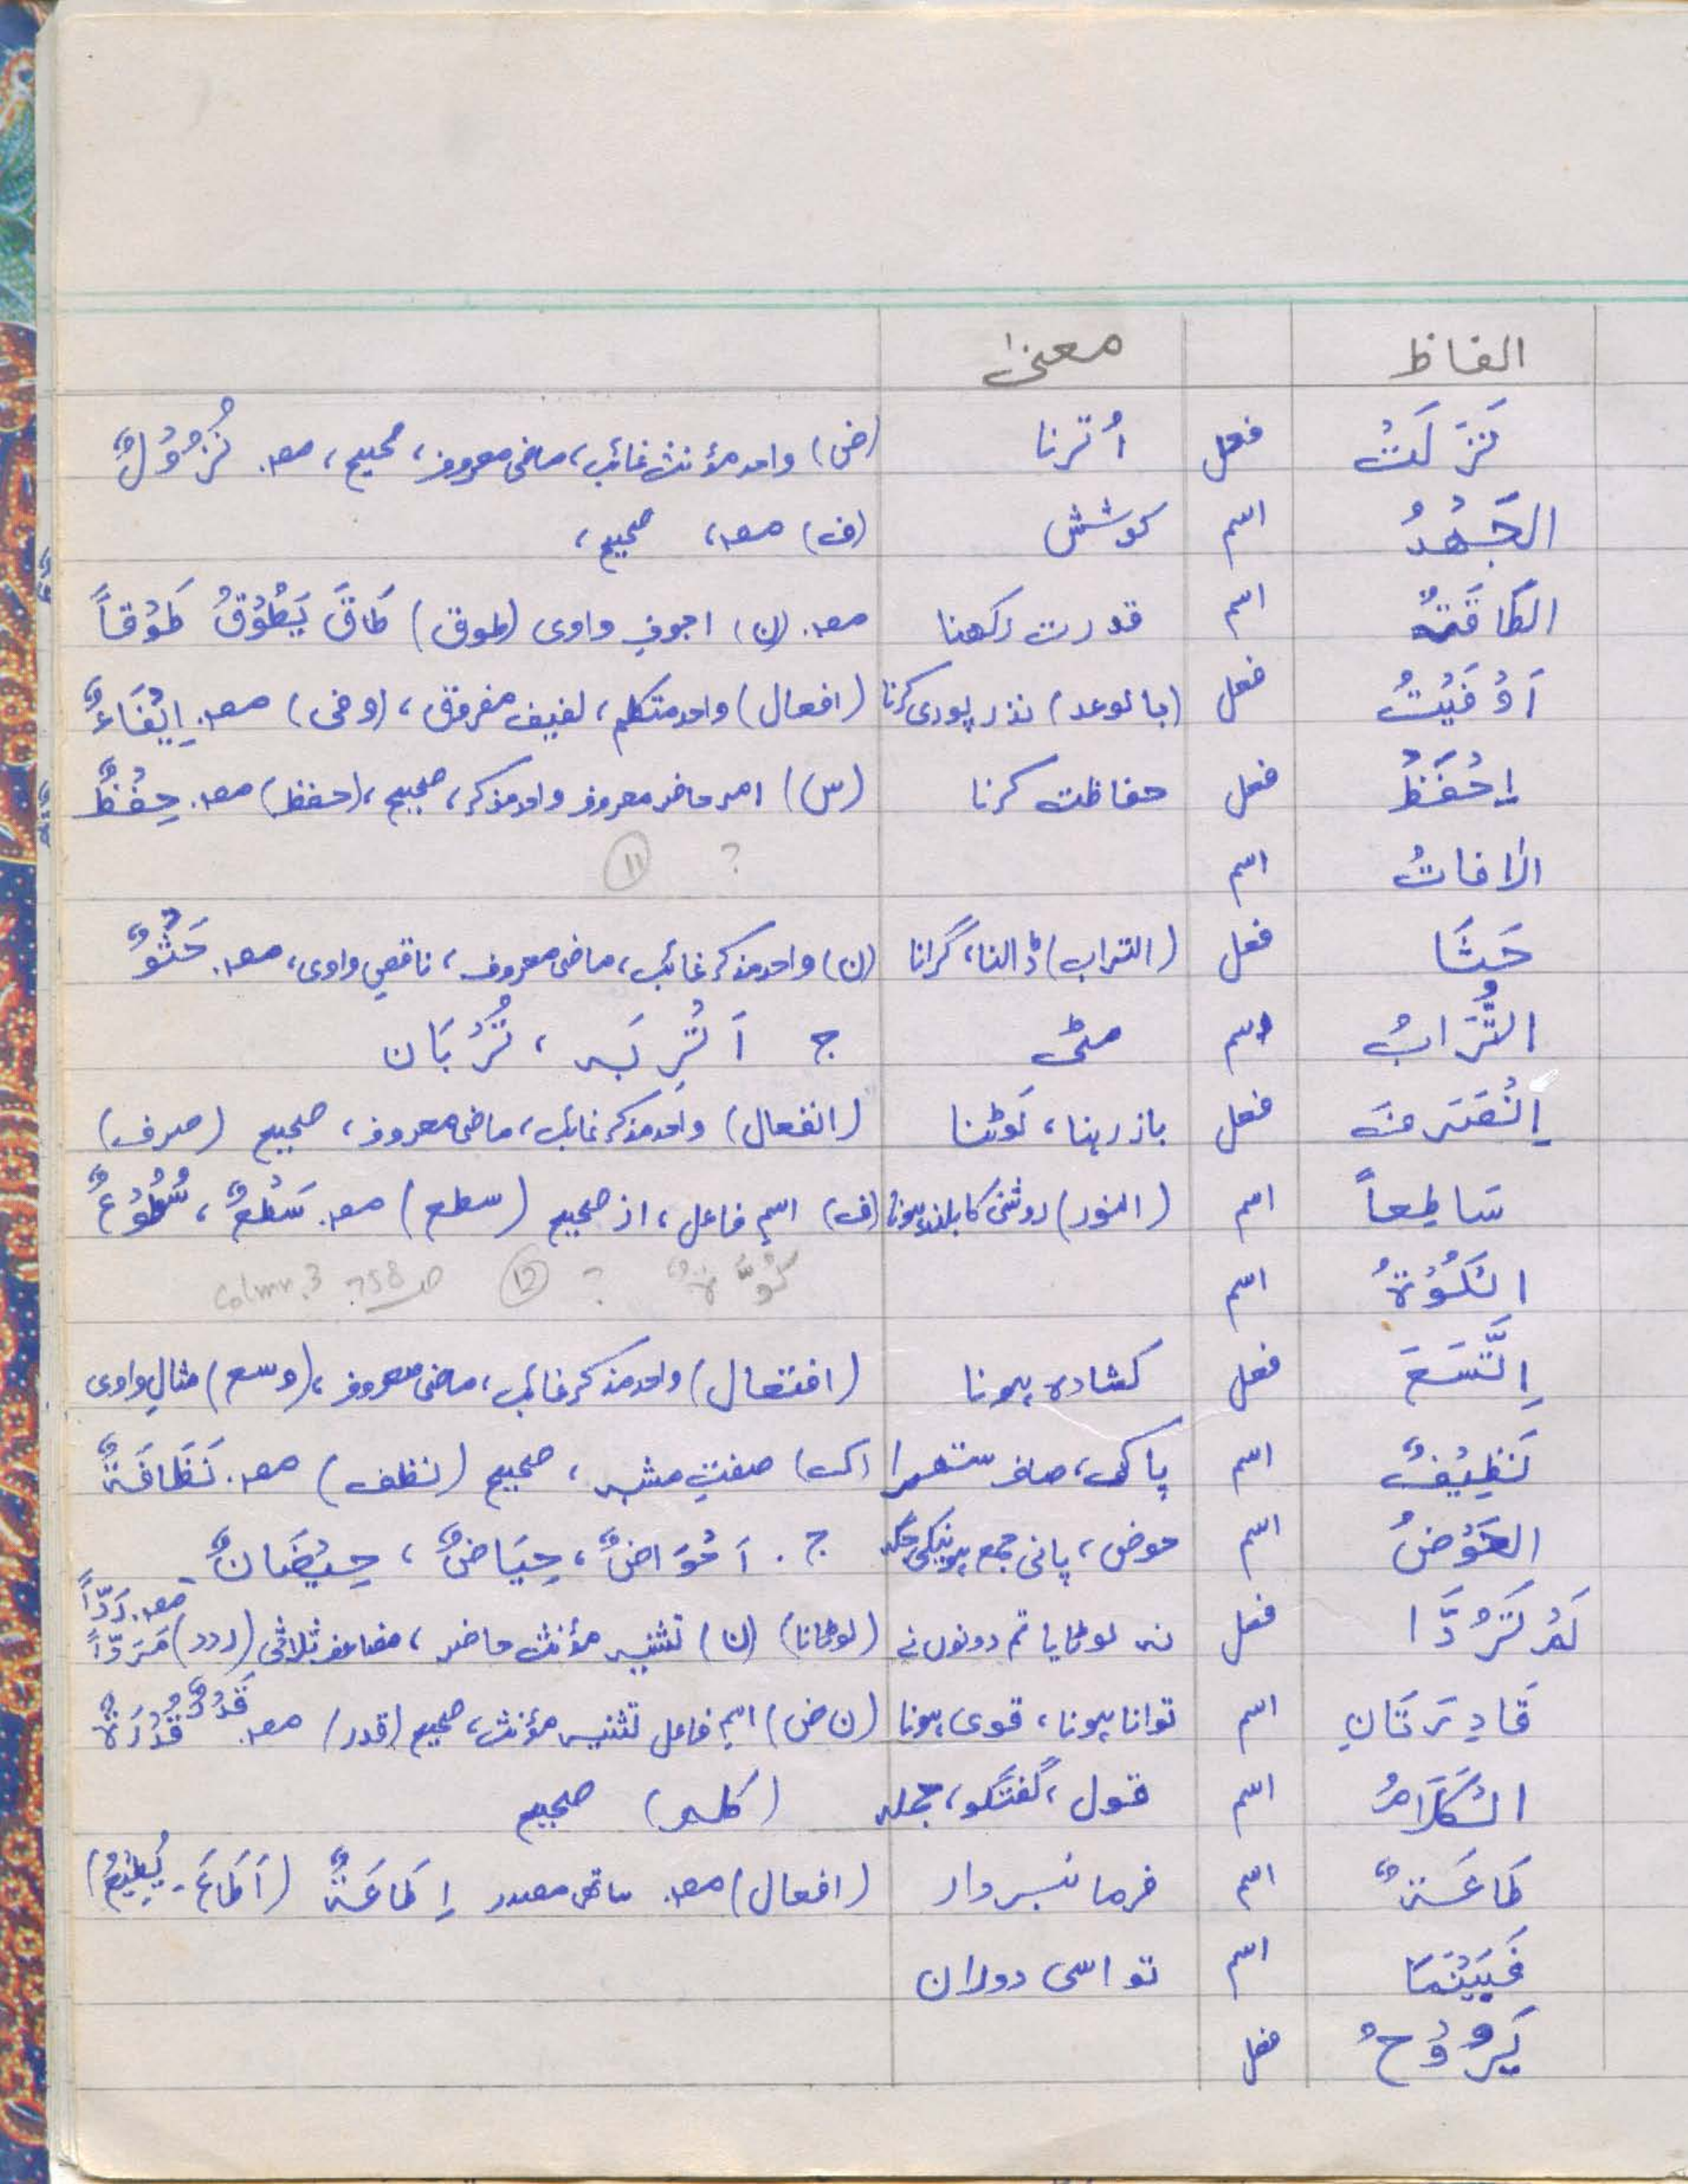 الفاظ معنیٰ
نَزَلَتْ فعل اُترنا (ض) واحد مؤنث غائب، ماضی معروف، صحیح، مصد. نُزُوْلٌ
الجَهْدُ اسم کوشش (ف) مصد، صحیح،
الطَاقَةُ اسم قدرت رکھنا مصد. (ن) اجوف واوی (طوق) طَاقَ یَطُوْقُ طَوْقاً
اَوْفَیْتُ فعل (بالوعد) نذر پوری کرنا (افعال) واحد متکلم، لفیف مفروق، (وفی) مصد. اِیْفَاءٌ
اِحْفَظْ فعل حفاظت کرنا (س) امر حاضر معروف واحد مذکر، صحیح، (حفظ) مصد. حِفْظٌ
الافاتُ اسم ? (11)
حَثَا فعل (التراب) ڈالنا، گرانا (ن) واحد مذکر غائب، ماضی معروف، ناقص واوی، مصد. حَثْوٌ
التُّرَابُ اسم مٹی ج اَتْرِبَہ ، تُرْبَان
اِنْصَرَفَ فعل باز رہنا، لَوٹنا (انفعال) واحد مذکر غائب، ماضی معروف، صحیح (صرف)
سَاطِعاً اسم (النور) روشنی کا بلند ہونا (ف) اسمِ فاعل، از صحیح (سطع) مصد. سَطْعٌ ، سُطُوْعٌ
الکُوْۃُ اسم کُوَّۃٌ ? (12) صـ 758? Colmn.3
اِتَّسَعَ فعل کشادہ ہونا (افتعال) واحد مذکر غائب، ماضی معروف، (وسع) مثالِ واوی
نَظِیْفٌ اسم پاک، صاف ستھرا (ک) صفتِ مشبہ ، صحیح (نظف) مصد. نَظَافَۃٌ
الحَوْضُ اسم حوض، پانی جمع ہونیکی جگہ ج . اَحْوَاضٌ، حِیَاضٌ ، حِیْضَانٌ
لَمْ تَرُدَّا فعل نہ لوٹایا تم دونوں نے (لوٹانا) (ن) تثنیہ مؤنث حاضر، مضاعف ثلاثی (ردد) مصد. رَدّاً مَرَدّاً
قَادِرَتَانِ اسم توانا ہونا، قوی ہونا (ن ض) اسم فاعل تثنیہ مؤنث، صحیح (قدر) مصد. قَدْرٌ قُدْرَۃٌ
الکَلَامُ اسم قول، گفتگو، جملہ (کلم) صحیح
طَاعَۃٌ اسم فرمانبردار (افعال) مصد. مصدر اِطَاعَۃٌ (اَطَاعَ - یُطِیْعُ)
فَبَیْنَمَا اسم تو اسی دوران
یَرُوْحُ فعل